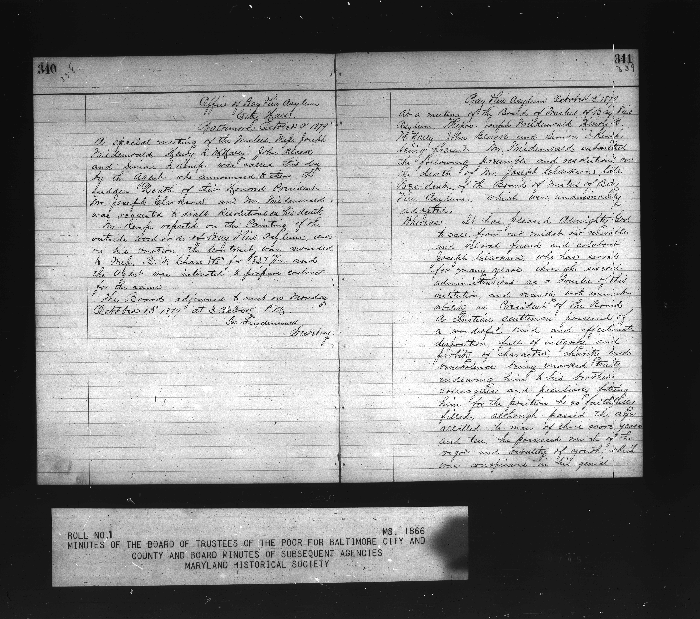 340
Office of Bay View Asylum
City Hall
Baltimore October 1879
A special meeting of the Trustees, Messrs Joseph
Friedenwald, Henry
and Simon I Kemp were called this day
by the Agent who announced to them the
sudden death of their Honored President
Mr Joseph and Mr Friedenwald
was requested to draft Resolutions on his death
Mr Kemp reported on the Painting of the
outside wood work of Bay View Asylum, and
on his motion the contract was awarded
to and
the Agent was instructed to prepare contract
for the same
The Board adjourned to meet on Monday
October 1879 at 3 o'clock P.M.
Jos Friedenwald
Secretary
341
Bay View Asylum October 1879
At a meeting of the Board of Trustees of Bay View
Asylum Messrs Joseph Friedenwald Henry
John and Simon I Kemp
being present Mr Friedenwald submitted
the following preamble and resolutions on
the death of Mr Joseph late
President of the Board of Trustees of Bay
View Asylum, which were unanimously
adopted
Whereas It has pleased Almighty God
to call from our midst our venerable
and beloved friend and
Joseph who has served
for many years under the several
administrations as a Trustee of this
institution, and recently with
ability as President of the Board
possessed of
a wonderful mind and affectionate
disposition full of integrity and
probity of character, charity and
benevolence being marked traits
endearing him to his brother
colleagues and peculiarly fitting
him for the position he so faithfully
filled, although passed the age
allotted to man of three score years
and ten he possessed much of the
vigor and vivacity of youth which
was conspicuous in his genial
ROLL NO.1 MS. 1866
MINUTES OF THE BOARD OF TRUSTEES OF THE POOR FOR BALTIMORE CITY AND
COUNTY AND BOARD MINUTES OF SUBSEQUENT AGENCIES
MARYLAND HISTORICAL SOCIETY